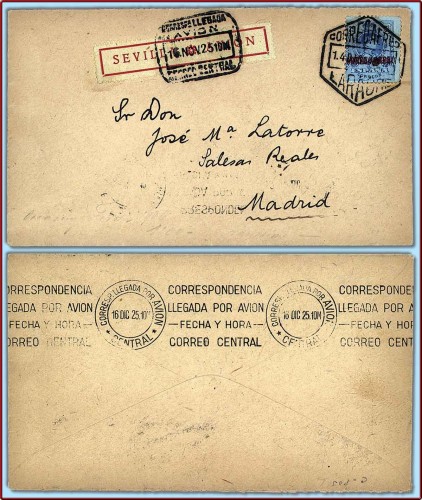 CORRESP. LLEGADA
AVION
16 NOV. 25 10M
CORREO CENTRAL
SEVILL
ÓN
CORREO AEREO
LARACHE
Sr Don
José Mª Latorre
Salesas Reales
Madrid
CORRESPONDENCIA
LLEGADA POR AVION
—FECHA Y HORA—
CORREO CENTRAL
CORRESP. LLEGADA POR AVION
16 DIC 25.10M
* CENTRAL *
CORRESPONDENCIA
LLEGADA POR AVION
—FECHA Y HORA—
CORREO CENTRAL
CORRESP. LLEGADA POR AVION
16 DIC 25.10M
* CENTRAL *
CORRESPONDENCIA
LLEGADA POR AV
—FECHA Y HOR
CORREO CENT